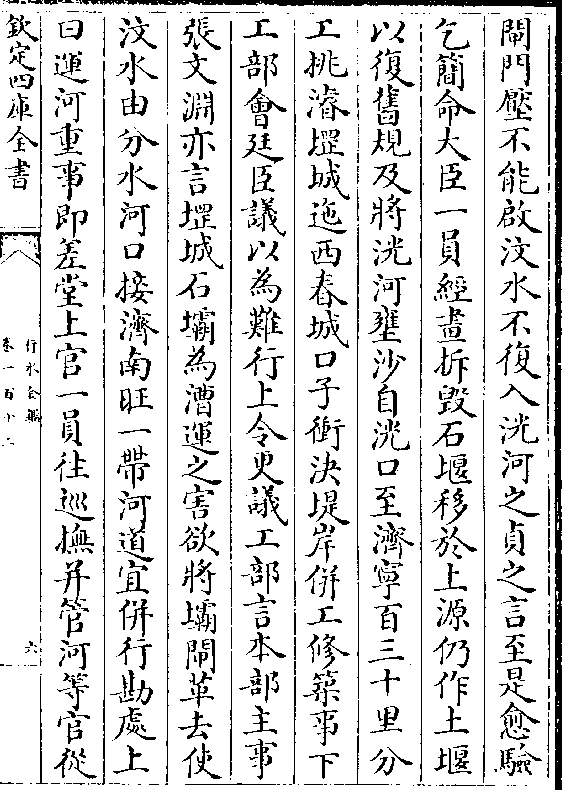 閘門壓不能啟汶水不復入洸河之貞之言至是愈驗
乞簡命大臣一員經畫拆毀石堰移於上源仍作土堰
以復舊規及將洸河壅沙自洸口至濟寧百三十里分
工挑濬堽城迤西春城口子衝決堤岸併工修築事下
工部會廷臣議以為難行上令更議工部言本部主事
張文淵亦言堽城石壩為漕運之害欲將壩閘革去使
汶水由分水河口接濟南旺一帶河道宜併行勘處上
曰運河重事即差堂上官一員往巡撫并管河等官從
欽定四庫全書
行水金鑑
卷一百十二
六